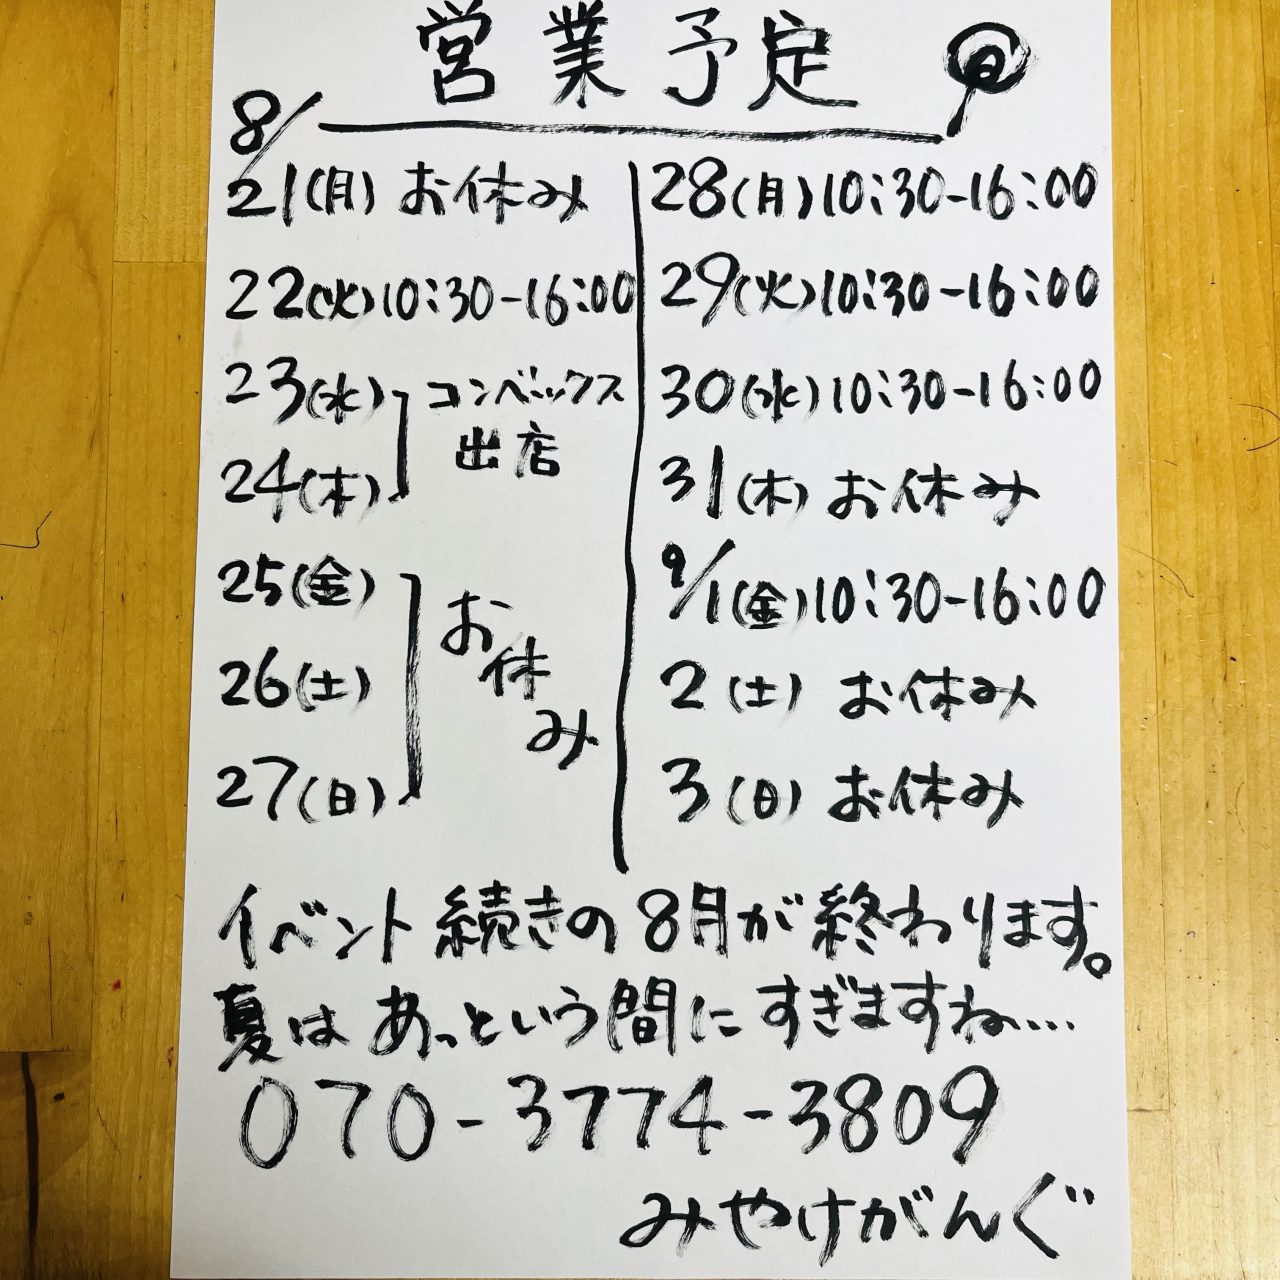 営業予定
8/
21(月) お休み
22(火) 10:30-16:00
23(水) コンベックス
24(木) 出店
25(金)
26(土) お休み
27(日)
28(月) 10:30-16:00
29(火) 10:30-16:00
30(水) 10:30-16:00
31(木) お休み
9/1(金) 10:30-16:00
2(土) お休み
3(日) お休み
イベント続きの8月が終わります。
夏はあっという間にすぎますね…
070-3774-3809
みやけがんぐ